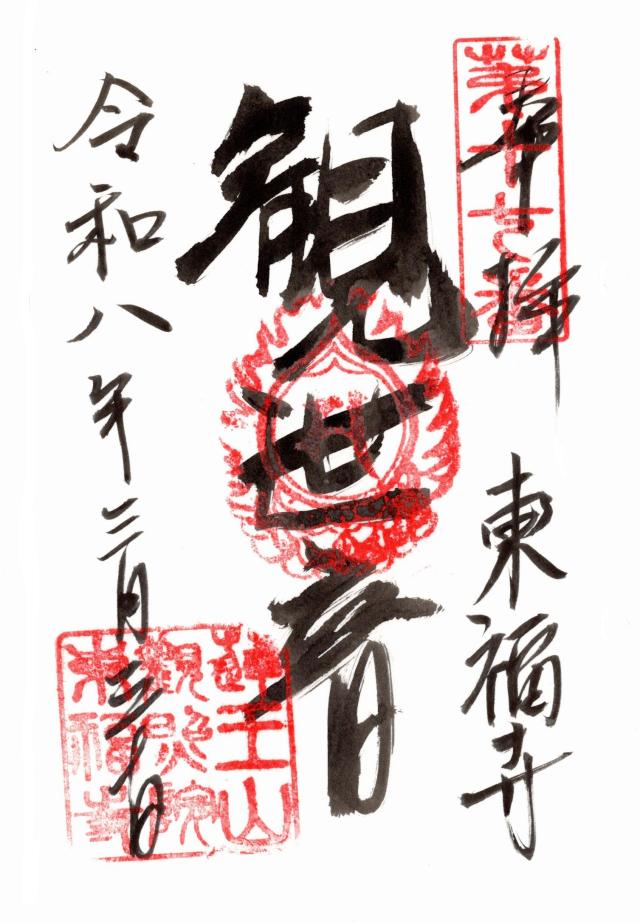 奉拝
第十七番
東福寺
観世音
令和八年三月
王山
東福寺